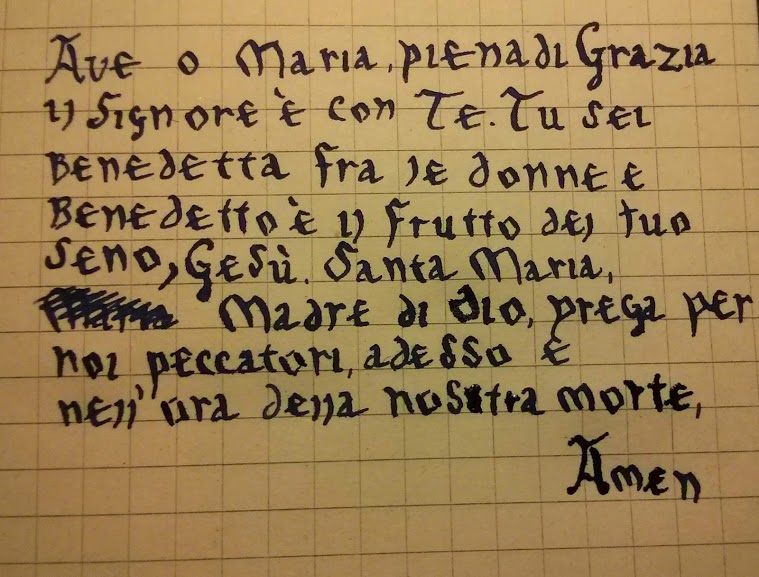 Ave o Maria, piena di Grazia
il Signore è con Te. Tu sei
Benedetta fra le donne e
Benedetto è il frutto del tuo
seno, Gesù. Santa Maria,
Madre di Dio, prega per
noi peccatori, adesso e
nell'ora della nostra morte,
Amen